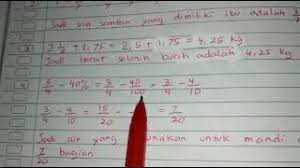 Jadi sisa santan yang dimiliki ibu adalah
2 1/2 + 1,75 = 2,5 + 1,75 = 4,25 kg
Jadi berat seluruh buah adalah 4,25 kg
3/4 - 40% = 3/4 - 40/100 = 3/4 - 4/10
3/4 - 4/10 = 15/20 - = 7/20
Jadi air yang untuk mandi
7/20 bagian